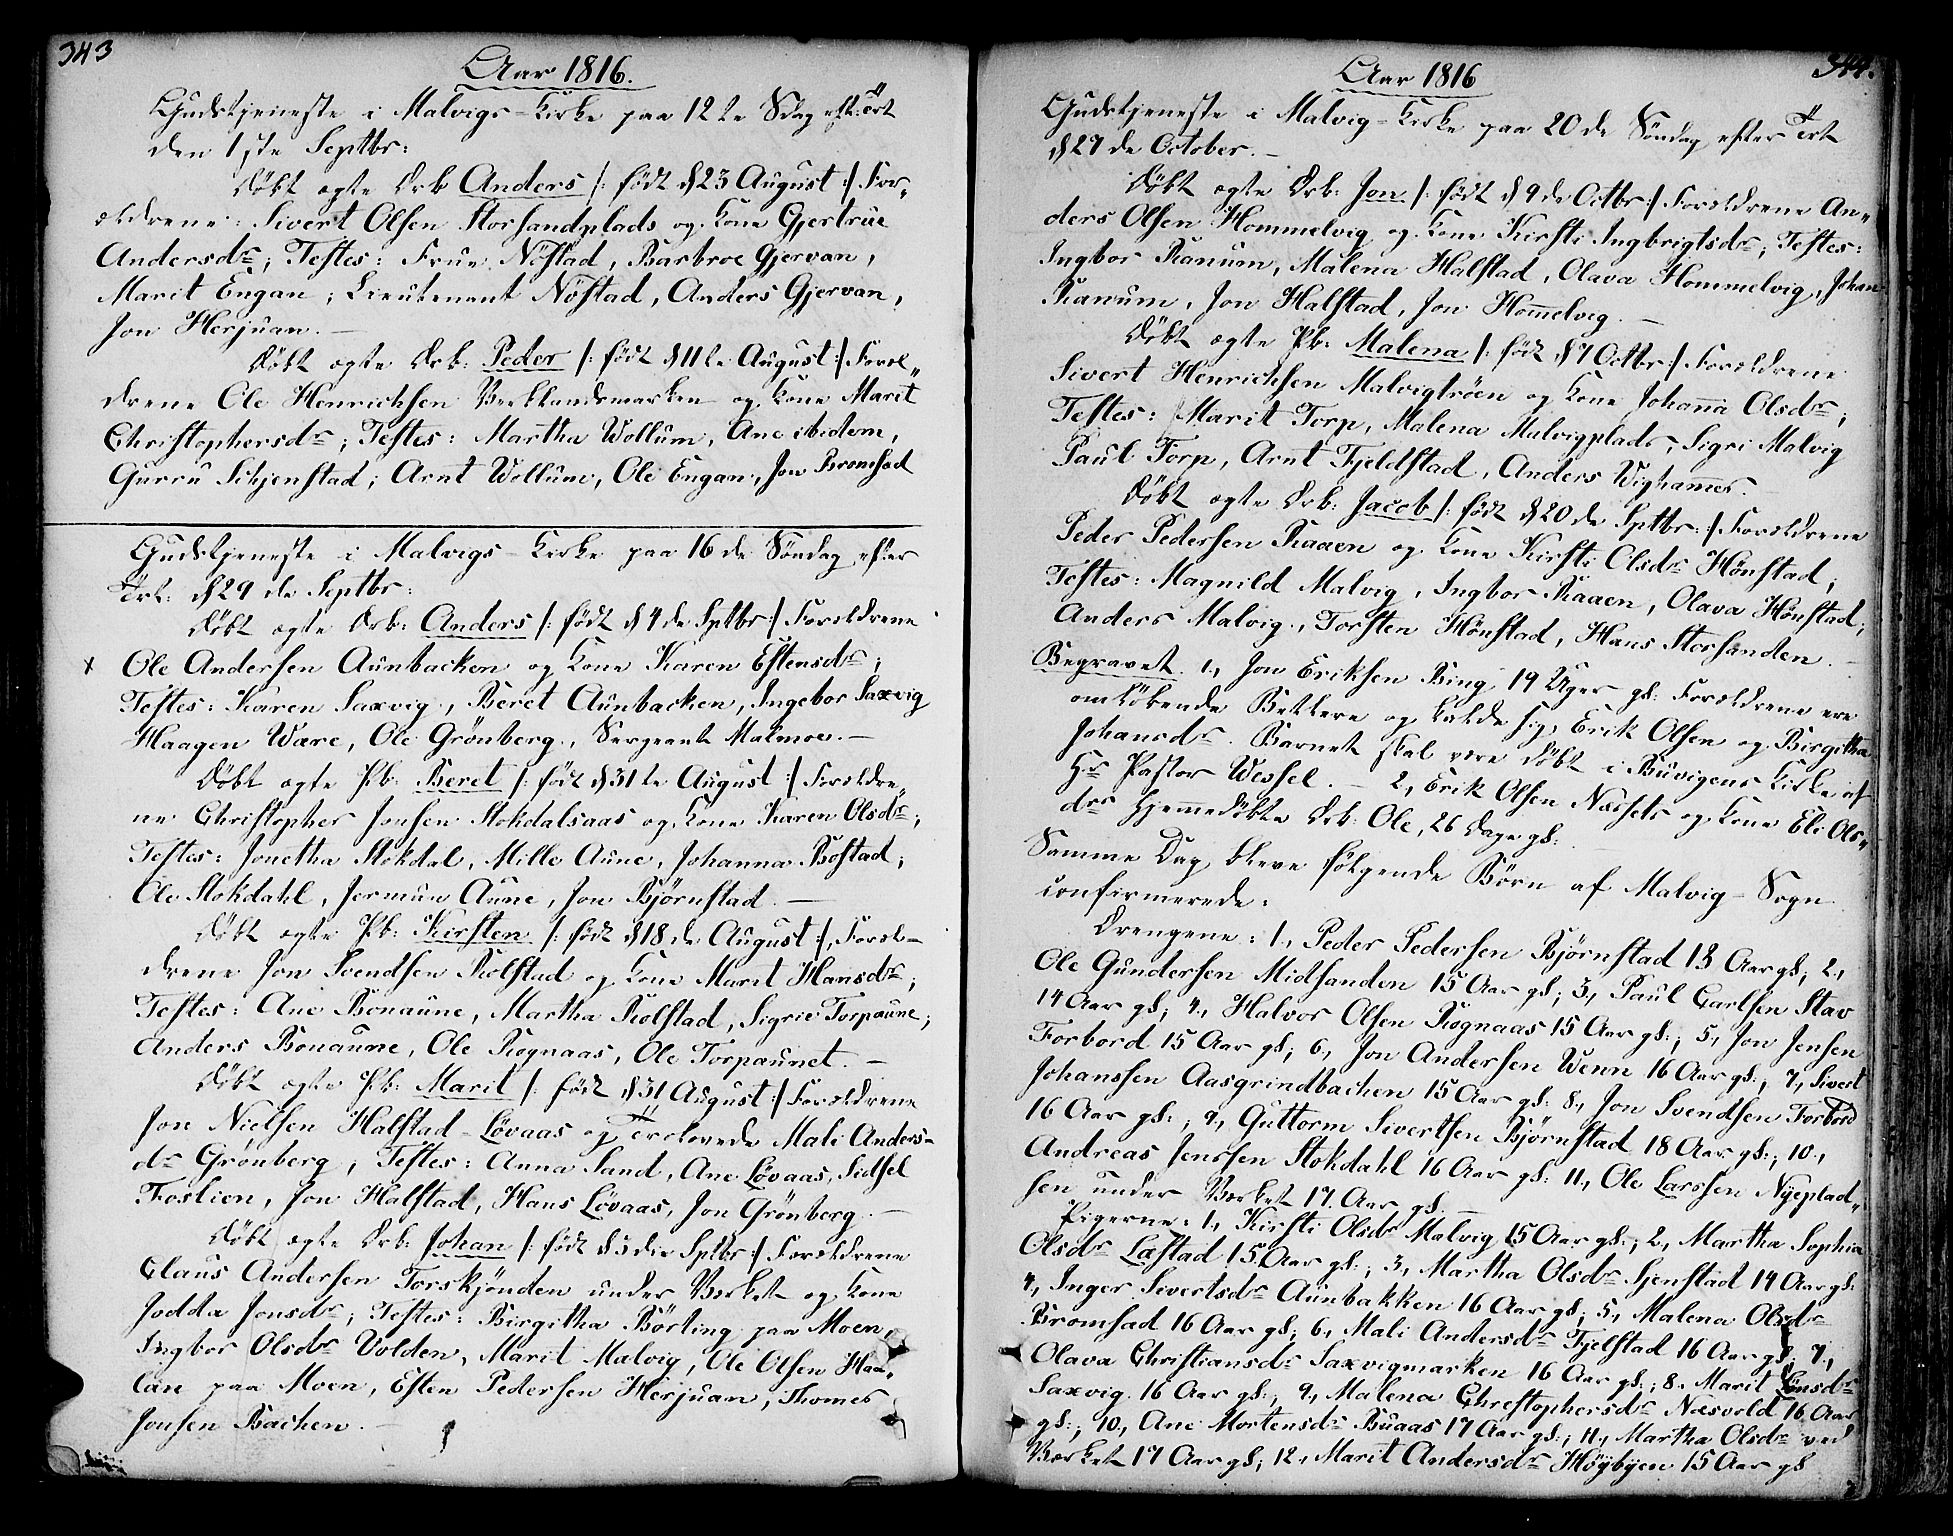 343
Aar 1816.
Gudstjeneste i Malvigs-Kirke paa 12te Sdag eft: Trt
den 1ste Septbr:
Døbt ægte Drb Anders /: født d 23 August :/ For„
ældrene: Sivert Olsen Storsandplads og Kone Gjertrue
Andersdr; Testes: Frue Nøstad, Barbroe Gjervan,
Marit Engan; Lieutenant Nøstad, Anders Gjervan,
Jon Herjuan. —
Døbt ægte Drb: Peder /: født d 11te August :/ Foræl„
drene Ole Henrichsen Verklandsmarken og Kone Marit
Christophersdr; Testes: Martha Wollum, Ane ibidem,
Gurru Schjenstad; Arnt Wollum, Ole Engan, Jon Bromsad
Gudstjeneste i Malvigs-Kirke paa 16de Søndag efter
Trt: d 29de Septbr:
Døbt ægte Drb: Anders /: født d 4de Sptbr :/ Forældrene
x Ole Andersen Aunbacken og Kone Karen Estensdr;
Testes: Karen Saxvig, Beret Aunbacken, Ingebor Saxvig
Haagen Være, Ole Grönberg, Sergeant Malmoe. —
Døbt ægte Pb: Beret /: født d 31te August :/ Forældre„
ne Christopher Jonsen Stokdalsaas og Kone Karen Olsdr;
Testes: Jonetha Stokdal, Mille Aune, Johanna Bostad;
Ole Stokdahl, Jermun Aune, Jon Björnstad. —
Døbt ægte Pb: Kirsten /: født d 18de August :/, Foræl-
drene Jon Svendsen Rolstad og Kone Marit Hansdr;
Testes: Ane Bonaune, Martha Rolstad, Sigrie Torpaune;
Anders Bonaune, Ole Rognaas, Ole Torpaunet. —
Døbt ægte Pb: Marit /: født d 31 August :/ Forældrene
Jon Nielsen Halstad-Lövaas og Trolovede Mali Anders-
dr Grønberg; Testes: Anna Sand, Ane Lövaas, Sidsel
Foslien, Jon Halstad, Hans Lövaas, Jon Grönberg. —
Døbt ægte Drb: Johan /: født d 5die Sptbr :/ Forældrene
Claus Andersen Torskjönden under Værket og Kone
Jodda Jonsdr; Testes: Birgitha Börting paa Moen,
Ingbor Olsdr Volden, Marit Malvig, Ole Olsen Haa„
lare paa Moen, Esten Pedersen Herjuan, Thomes
Jonsen Bachen. —
344.
Aar 1816
Gudstjeneste i Malvig-Kirke paa 20de Søndag efter Trt
d 27de October. —
Døbt ægte Drb: Jon /: født d 9de Octbr :/ Forældrene An„
ders Olsen Hommelvig og Kone Kirsti Ingbrigtsdr; Testes:
Ingbor Ranum, Malena Halstad, Olava Hommelvig, Johan
Ranum, Jon Halstad, Jon Hom̄elvig. —
Døbt ægte Pb: Malena /: født d 7 Octbr :/ Forældrene
Sivert Henrichsen Malvigtröen og Kone Johan̄a Olsdr;
Testes: Marit Torp, Malena Malvigplads, Sigri Malvig
Paul Torp, Arnt Fjeldstad, Anders Wigham̄er.
Døbt ægte Drb: Jacob /: født d 20de Sptbr: :/ Forældrene
Peder Pedersen Raaen og Kone Kirsti Olsdr Hönstad;
Testes: Magnild Malvig, Ingbor Raaen, Olava Hönstad;
Anders Malvig, Torsten Hönstad, Hans Storsanden. —
Begravet. 1., Jon Eriksen Bing 19 Uger gl: Forældrene ere
omløbende Betlere og kalde sig Erik Olsen og Birgitha
Johansdr. Barnet skal være døbt i Buvigens Kirke af
Hr Pastor Wessel. — 2, Erik Olsen Næssets og Kone Eli Ols„
drs Hjemmedøbte Drb: Ole, 26 Dage gl:
Samme Dag bleve følgende Børn af Malvig-Sogn
confirmerede:
Drengene: 1., Peder Pedersen Björnstad 18 Aar gl; 2.,
Ole Gundersen Midsanden 15 Aar gl; 3, Paul Carlsen Stav
14 Aar gl; 4., Halvor Olsen Rognaas 15 Aar gl:; 5, Jon Jensen
Forbord 15 Aar gl; 6., Jon Andersen Wenn 16 Aar gl:; 7, Sivert
Johanssen Aasgrindbachen 15 Aar gl: 8., Jon Svendsen Forbord
16 Aar gl:; 9, Guttorm Sivertsen Björnstad 18 Aar gl:; 10.,
Andreas Jenssen Stokdahl 16 Aar gl: 11., Ole Larssen Nyeplad„
sen under Værket 17. Aar gl. —
Pigerne: 1., Kirsti Olsdr Malvig 15 Aar gl:; 2., Martha Sophia
Olsdr Læstad 15. Aar gl:; 3, Martha Olsdr Sjenstad 14 Aar gl:
4., Inger Sivertsdr Aunbakken 16 Aar gl; 5, Malena Olsdr
Bromsad 16 Aar gl; 6, Mali Andersdr Fjelstad 16 Aar gl; 7.,
Olava Christiansdr Saxvigmarken 16 Aar gl:; 8., Marit Jonsdr
Saxvig 16 Aar gl:; 9., Malena Christophersdr Næsvold 16 Aar
gl:; 10, Ane Mortensdr Buaas 17 Aar gl:; 11., Martha Olsdr ved
Værket 17 Aar gl; 12., Marit Andersdr Höybyen 15 Aar gl